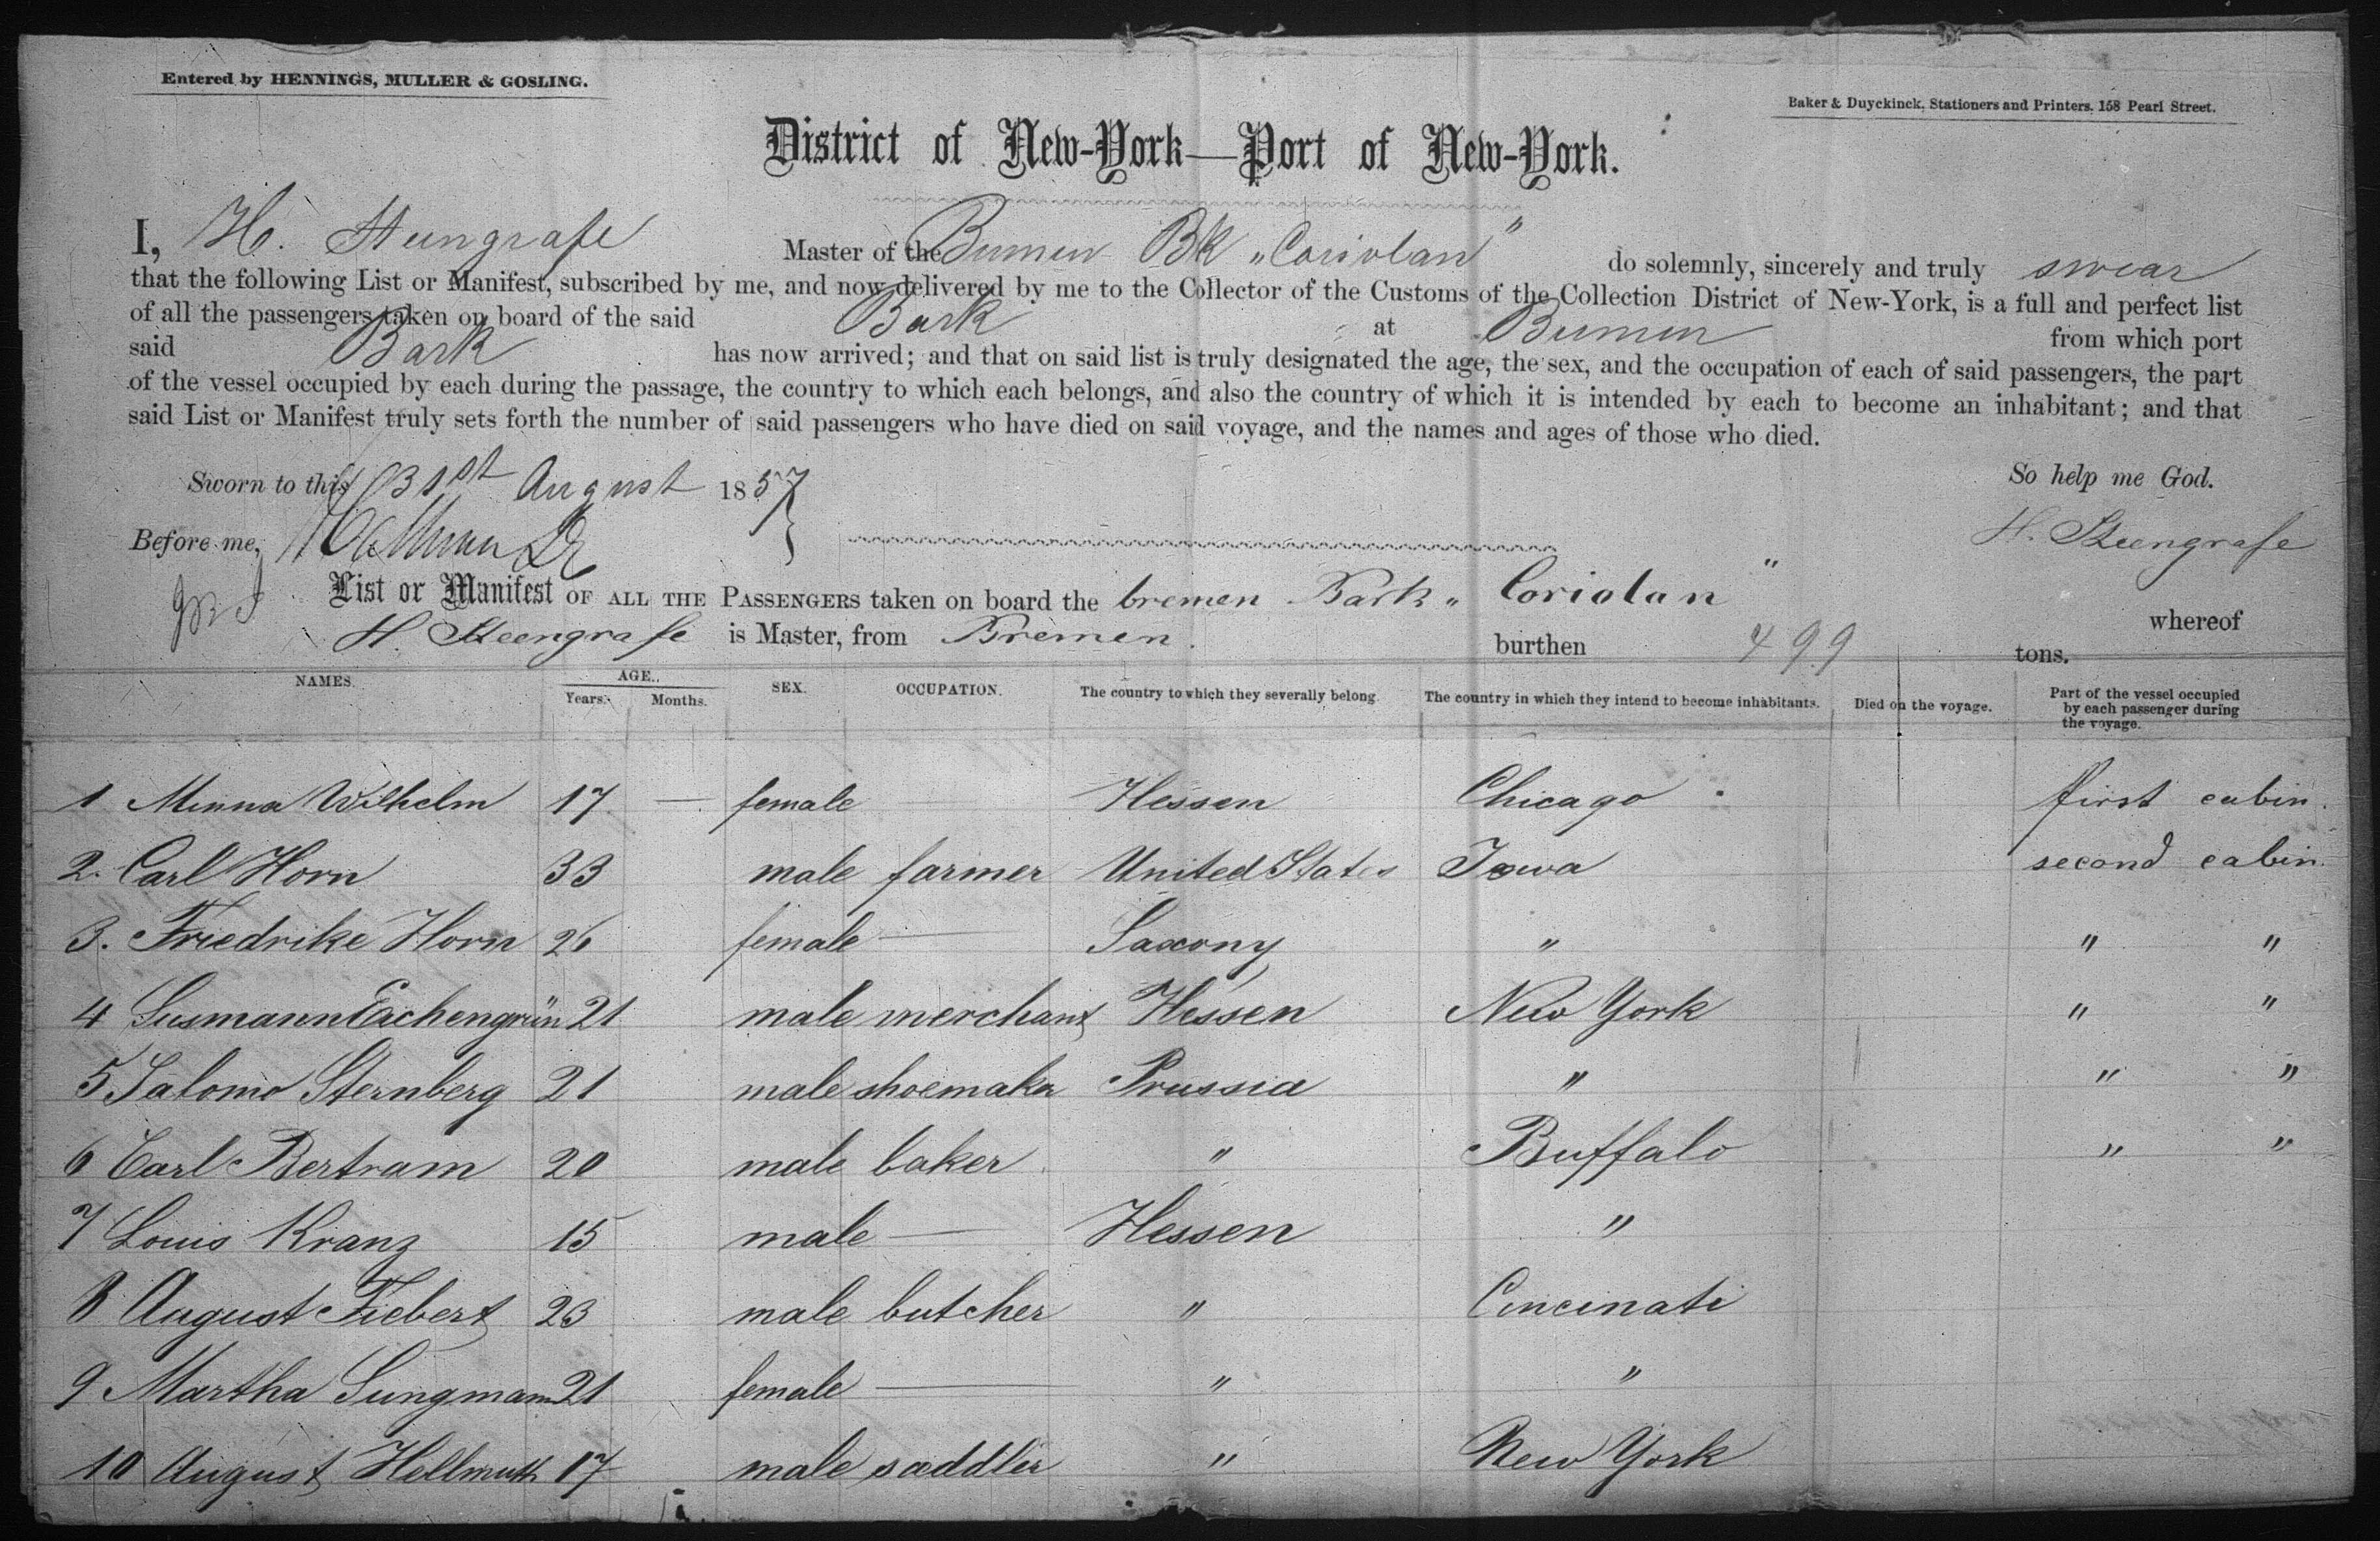 Entered by HENNINGS, MULLER & GOSLING.
Baker & Duyckinck, Stationers and Printers, 158 Pearl Street.
District of New-York—Port of New-York.
I, H. Steengrafe Master of the Bremen Bk „Coriolan" do solemnly, sincerely and truly swear
that the following List or Manifest, subscribed by me, and now delivered by me to the Collector of the Customs of the Collection District of New-York, is a full and perfect list
of all the passengers taken on board of the said Bark at Bremen from which port
said Bark has now arrived; and that on said list is truly designated the age, the sex, and the occupation of each of said passengers, the part
of the vessel occupied by each during the passage, the country to which each belongs, and also the country of which it is intended by each to become an inhabitant; and that
said List or Manifest truly sets forth the number of said passengers who have died on said voyage, and the names and ages of those who died.
Sworn to this 31st August 1857
So help me God.
Before me,
H. Steengrafe
List or Manifest OF ALL THE PASSENGERS taken on board the bremen Bark „ Coriolan " whereof
H. Steengrafe is Master, from Bremen. burthen 499 tons.
NAMES. AGE. SEX. OCCUPATION. The country to which they severally belong. The country in which they intend to become inhabitants. Died on the voyage. Part of the vessel occupied by each passenger during the voyage.
Years. Months.
1 Minna Wilhelm 17 — female Hessen Chicago first cabin.
2. Carl Horn 33 male farmer United States Iowa second cabin.
3. Friedrike Horn 26 female — Saxony " " "
4 Susmann Eichengrün 21 male merchant Hessen New York " "
5 Salomo Sternberg 21 male shoemaker Prussia " " "
6 Carl Bertram 20 male baker " Buffalo " "
7 Louis Kranz 15 male — Hessen "
8 August Fiebert 23 male butcher " Cincinati
9 Martha Jungmann 21 female — " "
10 August Hellmuth 17 male saddler " New York